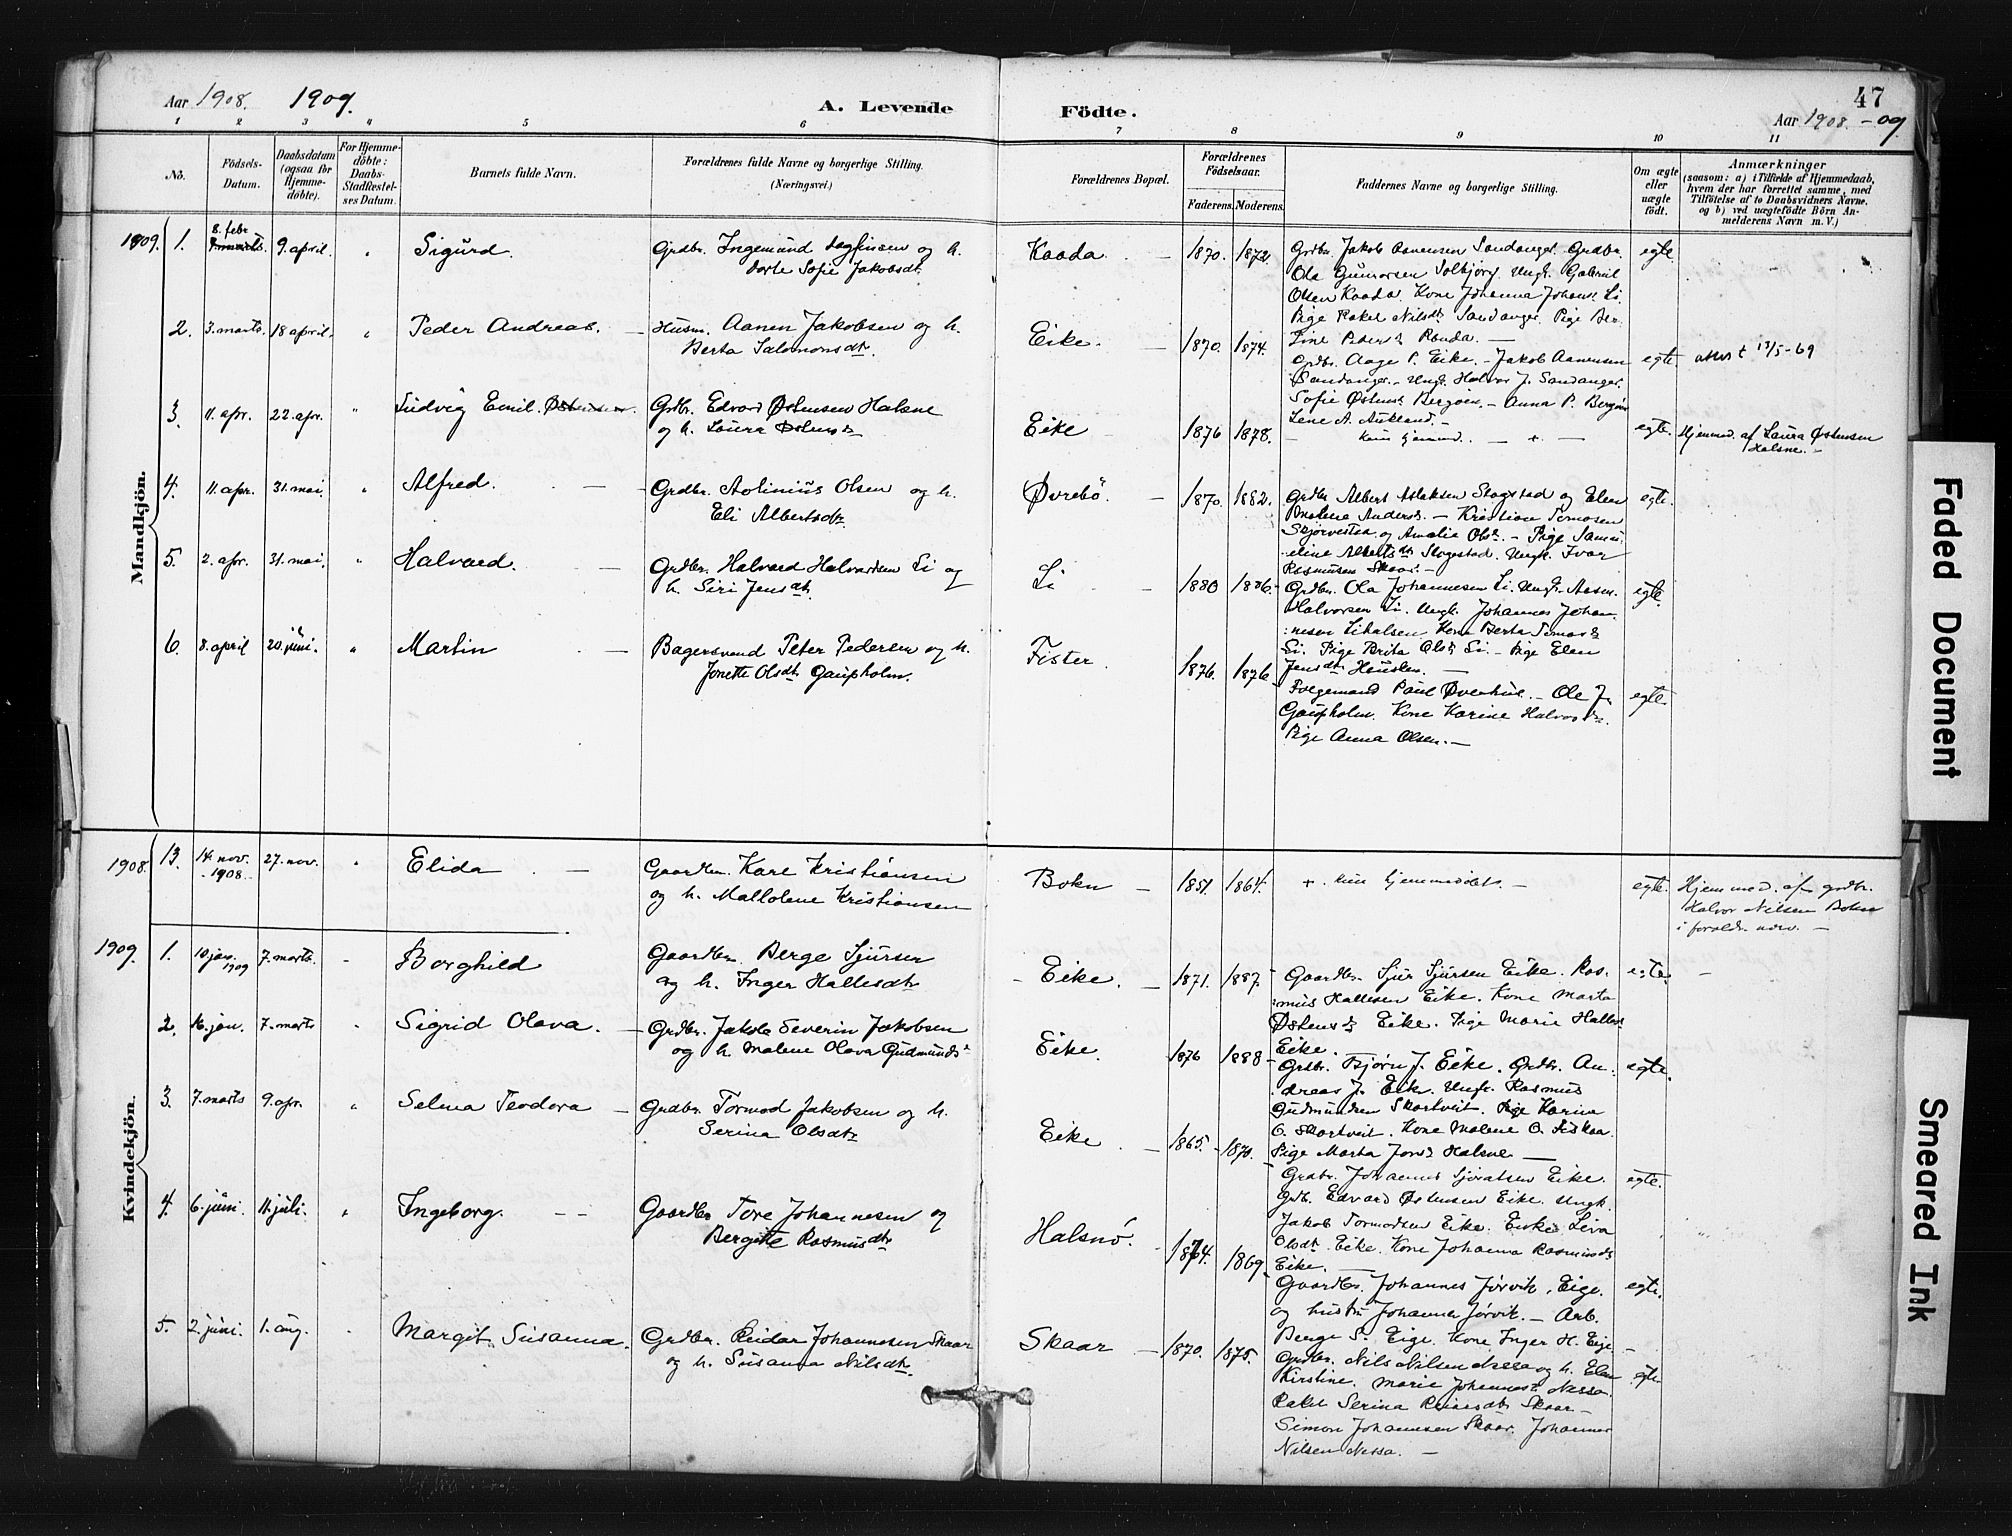 Aar 1908. 1909. A. Levende Födte. 47
Aar 1908.-09
1 2 3 4 5 6 7 8 9 10 11
No.
Födsels-Datum.
Daabsdatum (ogsaa for Hjemme-döbte).
For Hjemme-döbte: Daabs-Stadfæstel-ses Datum.
Barnets fulde Navn.
Forældrenes fulde Navne og borgerlige Stilling.
(Næringsvei.)
Forældrenes Bopæl.
Forældrenes Födselsaar.
Faderens. Moderens.
Faddernes Navne og borgerlige Stilling.
Om ægte eller uægte födt.
Anmærkninger
(saasom: a) i Tilfælde af Hjemmedaab,
hvem der har forrettet samme, med
Tilföielse af to Daabsvidners Navne.
og b) ved uægtefödte Börn An-
melderens Navn m. V.)
Mandkjön.
1909. 1. 8. febr 9. april. " Sigurd. Grdbr. Ingemund Dagfinsen og h.
Dorte Sofie Jakobsdt.
Kaada. 1870. 1872.
Grdbr. Jakob Aanensen Sandanger. Grdbr.
Ola Gunvorsen Solbjorg. Ungk. Gabriel
Olsen Kaada. Kone Johanna Johans. Li.
Pige Rakel Nilsdt Sandanger. Pige Ber
Line Peders Raada.
egte
2. 3. marts. 18 april. " Peder Andreas. Husm. Aanen Jakobsen og h.
Berta Salomonsdt.
Eike. 1870. 1874.
Grdbr. Aage P. Eike. - Jakob Aanensen
Sandanger. - Ungk. Halvor J. Sandanger.
Sofie Østens. Bergøen. - Anna P. Bergøen
Lene A. Aukland. -
egte. attest 17/5-69
3. 11. apr. 22. apr. " Ludvig Emil. Østensen. Grdbr. Edvard Østensen Halsne
og h. Laura Østens
Eike 1876 1878. - kun hjemmed. - + - egte.
Hjemmed. af Laura Østensen
Halsne. -
4. 11. apr. 31. mai. " Alfred. Grdbr. Aolinius Olsen og h.
Eli Albertsdt.
Øvrebö. 1870. 1882.
Grdbr Albert Aslaksen Stogstad og Elen
Malene Anders. - Kristian Tomasen
Skjørvestad og Amalie Ols. - Pige Samu
eline Albertsdt Slogestad. Ungk. Ivar
Rasmusen Skaar. -
egte.
5. 2. apr. 31. mai. " Halvard. Grdbr. Halvard Halvardsen Li og
h. Siri Jensdt.
Li 1880 1886.
Grdbr. Ola Johannesen Li. Ungk. Aasm.
Halvorsen Li. Ungk. Johannes Johan
:nesen Lihalsen. Kone Berta Tomas
Li. Pige Brita Ols Li. - Pige Elen
Jensdt. Hausken. -
egte.
6. 8. april 20. juni. " Martin Bagersvend Peter Pedersen og h.
Jonette Olsdt Gaupholm.
Fister. 1876. 1876.
Folgemand Paul Øvrehus. - Ole J.
Gaupholm. Kone Karine Halvors.
Pige Anna Olsen. -
egte.
Kvindekjön.
1908. 13. 14. nov. 1908. 27. nov. " Elida Gaardbr. Kare Kristiansen
og h. Mallolene Kristiansen
Bokn 1851. 1864. + kun hjemmedöbt. - egte.
Hjemmed. af grdbr.
Halvor Nilsen Bokn
i foraldr. nærv. -
1909. 1. 10. jan. 1909 7. marts. Borghild Gaardbr. Berge Sjursen
og h. Inger Hallesdt.
Eike. 1871. 1887.
Gaardbr. Sjur Sjursen Eike. Ras-
:mus Hallesen Eike. Kone Marta
Østens Eike. Pige Marie Halles
Eike.
egte.
2. 16. jan. 7. marts " Sigrid Olava. Grdbr. Jakob Severin Jakobsen
og h Malene Olava Gudmunds
Eike. 1876 1888
Grdbr. Bjørn J. Eike. Grdbr. An-
dreas J. Eike. Ungk. Rasmus
Gudmundsen Skartveit. Pige Karina
G. Skartveit. Kone Malene O. Fiskaa.
Pige Marta Jons Halsne -
egte.
3. 7. marts 9. apr. " Selma Teodora Grdbr. Tormod Jakobsen og h.
Serina Olsdt
Eike 1865. 1870.
Grdbr. Johannes Sjovatsen Eike.
Grdb. Edvard Østensen Eike. Ungk.
Jakob Tormodsen Eike. Enke Siva
Olsdt. Eike. Kone Johanna Rasmusdt
Eike. -
egte.
4. 6. juni. 11. juli. " Ingeborg. Gaardbr Tore Johannesen og
Bergitte Rasmusdt
Halsnö. 1874. 1869
Gaardbr. Johannes Jørvik. Eige.
og hustru Johanne Jørvik. - Arb.
Berge S. Eige. Kone Inger H. Eige. -
egte.
5. 2. juni. 1. aug. Margit Susanna. Grdbr. Reidar Johannesen Skaar
og h. Susanna Nilsdt.
Skaar 1870. 1875.
Grdbr. Nils Nilsen Nessa og h. Elen
Kirstine. Marie Johannesd. Nessa.
Rakel Serina Reinertsdt Skaar -
Simon Johannesen Skaar. Johannes
Nilsen Nessa. -
egte
Faded Document
Smeared Ink